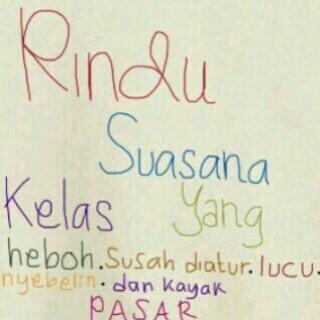 Rindu
Suasana
Kelas Yang
heboh. Susah diatur. lucu.
nyebelin. dan kayak
PASAR